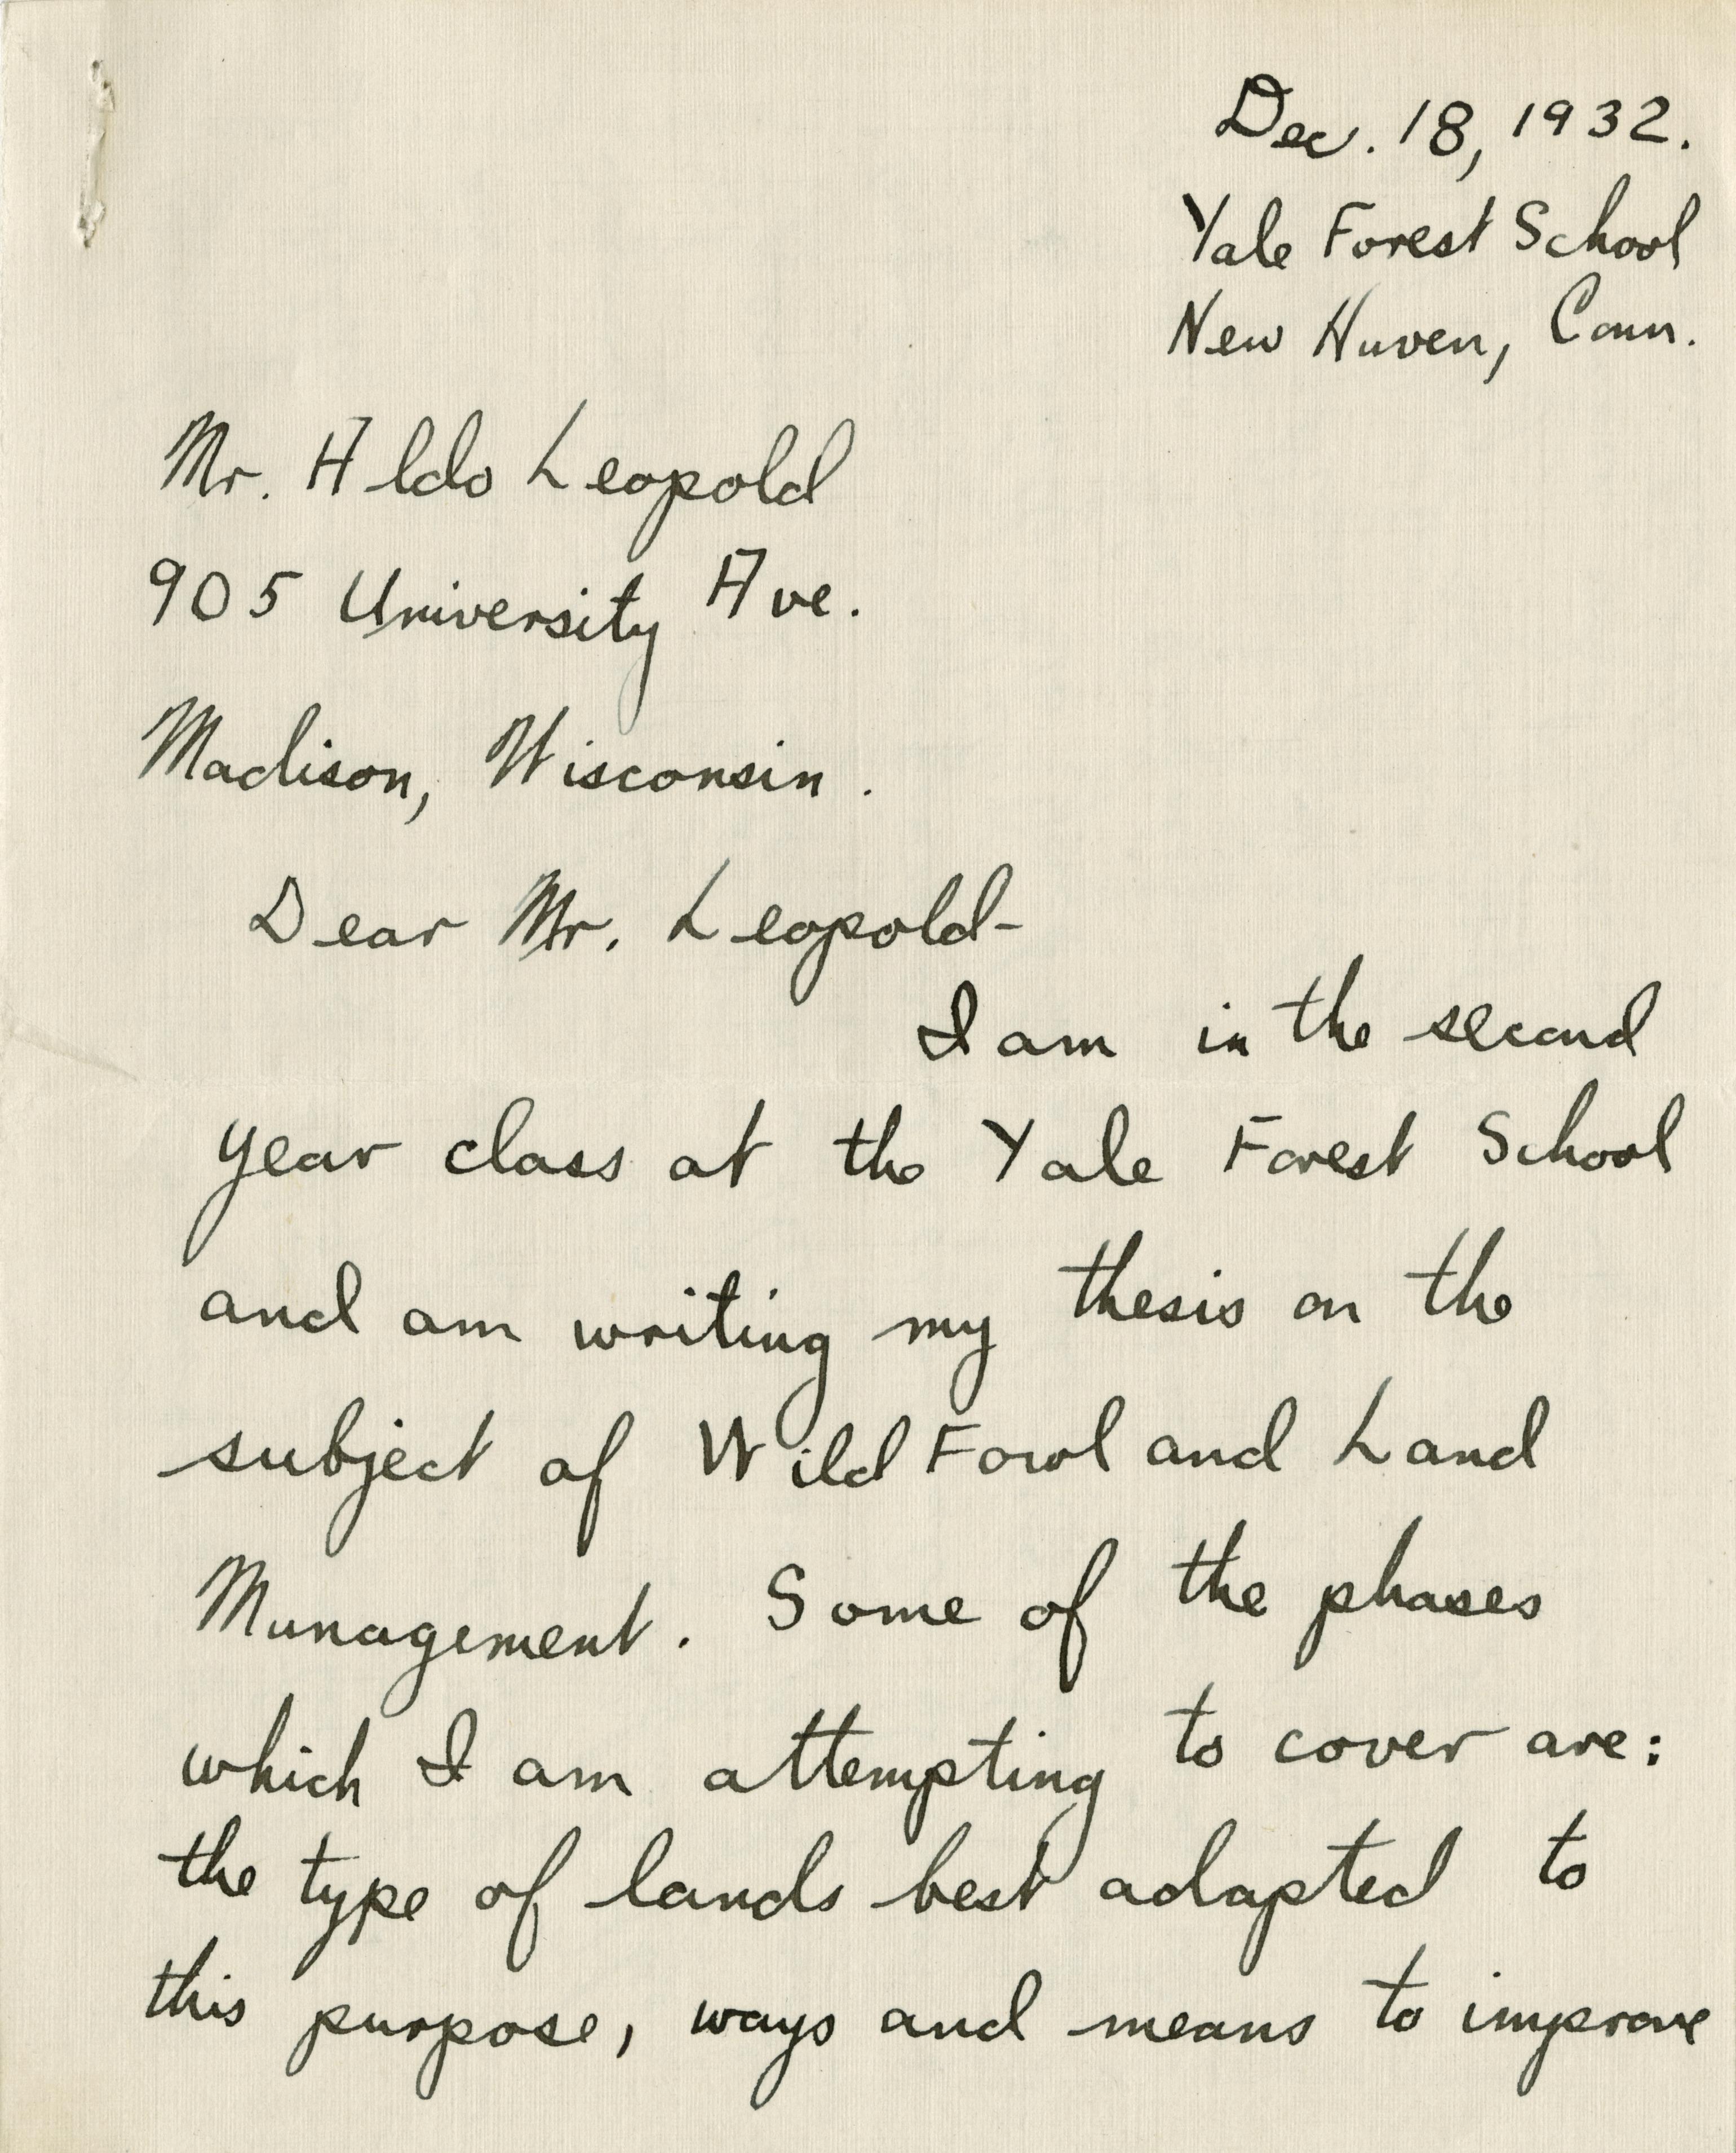 Dec. 18, 1932.
Yale Forest School
New Haven, Conn.
Mr. Aldo Leopold
905 University Ave.
Madison, Wisconsin.
Dear Mr. Leopold-
I am in the second
year class at the Yale Forest School
and am writing my thesis on the
subject of Wild Fowl and Land
Management. Some of the phases
which I am attempting to cover are:
the type of lands best adapted to
this purpose, ways and means to improve